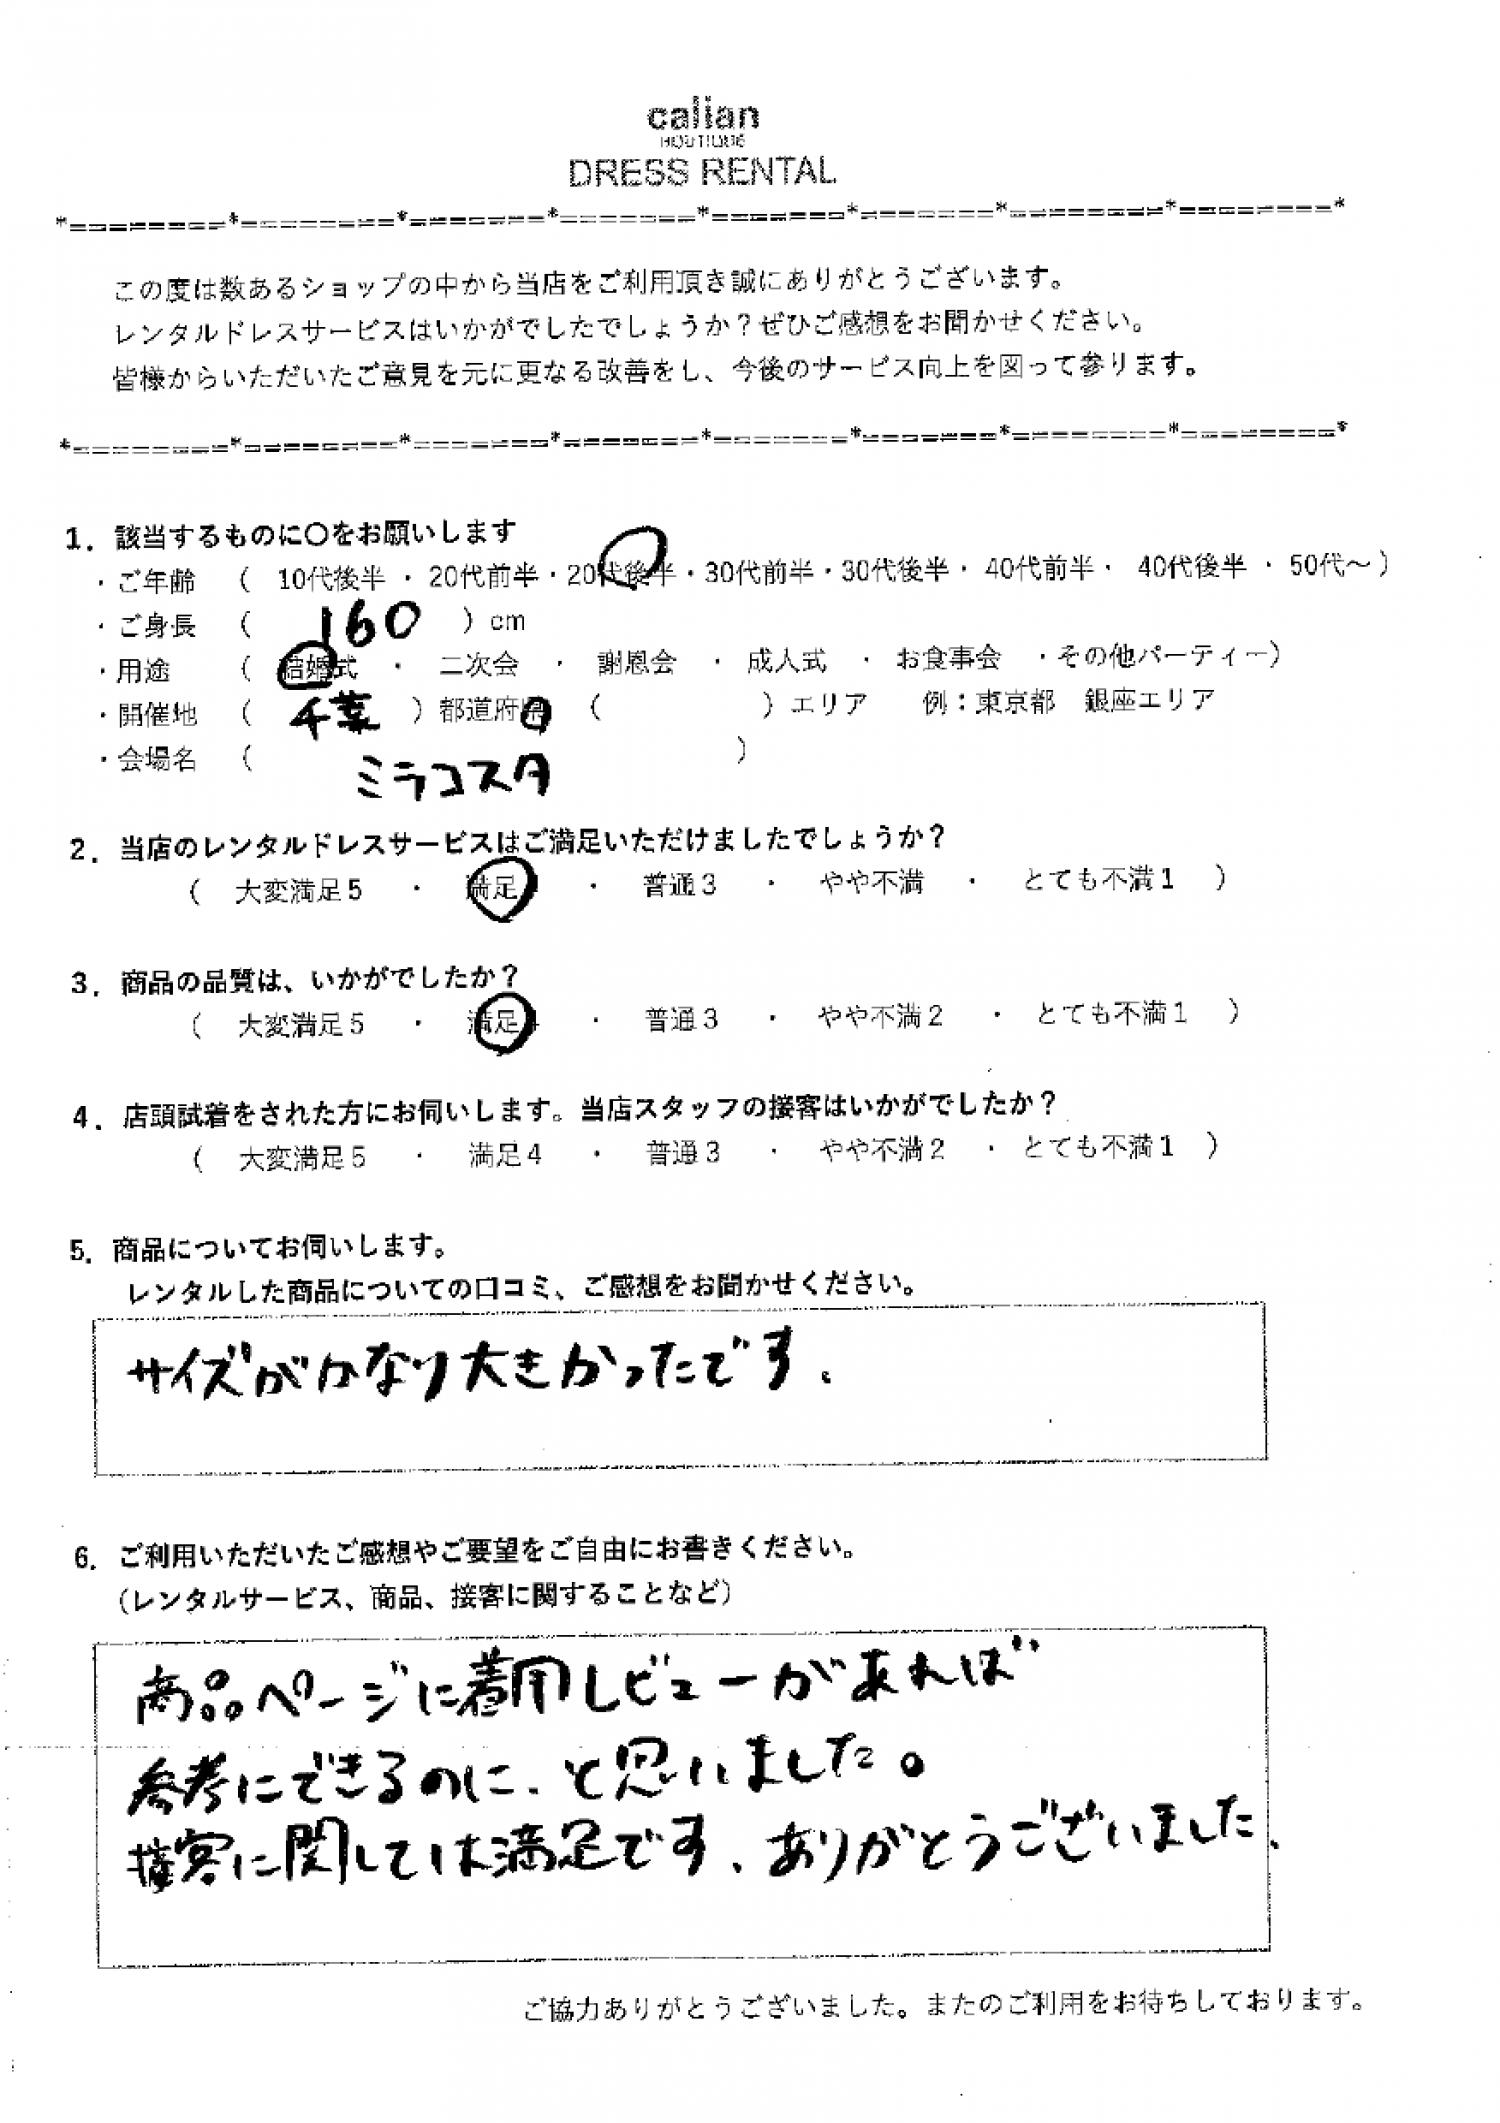 calian
BOUTIQUE
DRESS RENTAL
*========*========*=======*=======*=======*=======*========*========*
この度は数あるショップの中から当店をご利用頂き誠にありがとうございます。
レンタルドレスサービスはいかがでしたでしょうか？ぜひご感想をお聞かせください。
皆様からいただいたご意見を元に更なる改善をし、今後のサービス向上を図って参ります。
*========*========*=======*=======*=======*=======*========*========*
1. 該当するものに〇をお願いします
・ご年齢 （ 10代後半 ・ 20代前半・20代後半・30代前半・30代後半・ 40代前半・ 40代後半 ・ 50代～）
・ご身長 （ 160 ）cm
・用途 （ 結婚式 ・ 二次会 ・ 謝恩会 ・ 成人式 ・ お食事会 ・その他パーティー）
・開催地 （ 千葉 ）都道府県 （ ）エリア 例：東京都 銀座エリア
・会場名 （ ミラコスタ ）
2. 当店のレンタルドレスサービスはご満足いただけましたでしょうか？
（ 大変満足5 ・ 満足 ・ 普通3 ・ やや不満 ・ とても不満1 ）
3. 商品の品質は、いかがでしたか？
（ 大変満足5 ・ 満足4 ・ 普通3 ・ やや不満2 ・ とても不満1 ）
4. 店頭試着をされた方にお伺いします。当店スタッフの接客はいかがでしたか？
（ 大変満足5 ・ 満足4 ・ 普通3 ・ やや不満2 ・ とても不満1 ）
5. 商品についてお伺いします。
レンタルした商品についての口コミ、ご感想をお聞かせください。
サイズがかなり大きかったです。
6. ご利用いただいたご感想やご要望をご自由にお書きください。
（レンタルサービス、商品、接客に関することなど）
商品ページに着用レビューがあれば
参考にできるのに、と思いました。
接客に関しては満足です、ありがとうございました、
ご協力ありがとうございました。またのご利用をお待ちしております。